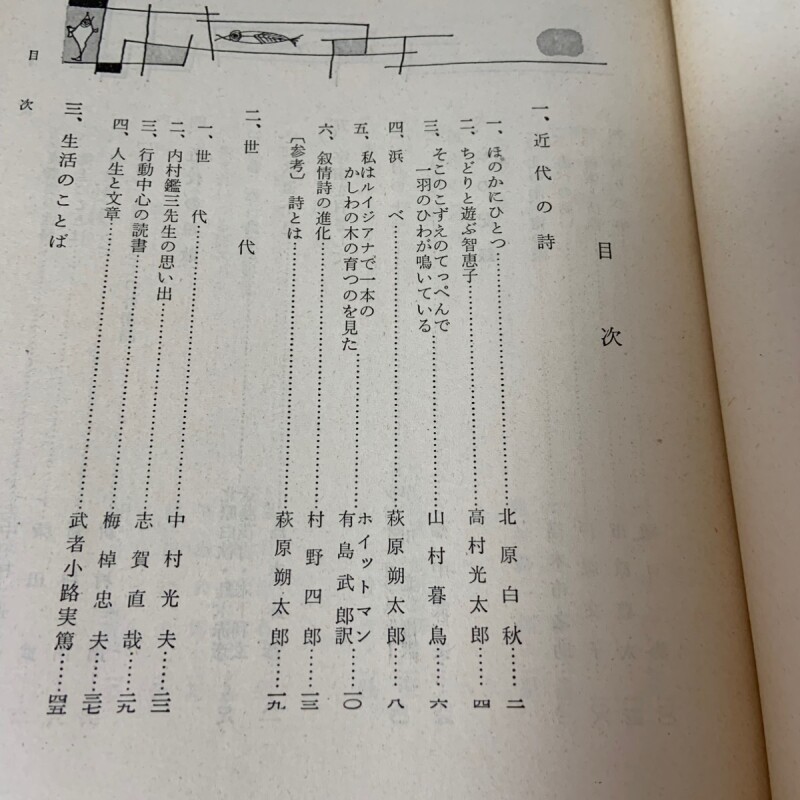 目次
一、近代の詩
一、ほのかにひとつ……北原白秋……二
二、ちどりと遊ぶ智恵子……高村光太郎……四
三、そこのこずえのてっぺんで
一羽のひわが鳴いている……山村暮鳥……六
四、浜べ……萩原朔太郎……八
五、私はルイジアナで一本の
かしわの木の育つのを見た……ホイットマン
有島武郎訳……一〇
六、叙情詩の進化……村野四郎……一三
〔参考〕詩とは……萩原朔太郎……一九
二、世代
一、世代……中村光夫……二三
二、内村鑑三先生の思い出……志賀直哉……二九
三、行動中心の読書……梅棹忠夫……三七
四、人生と文章……武者小路実篤……四五
三、生活のことば
目次